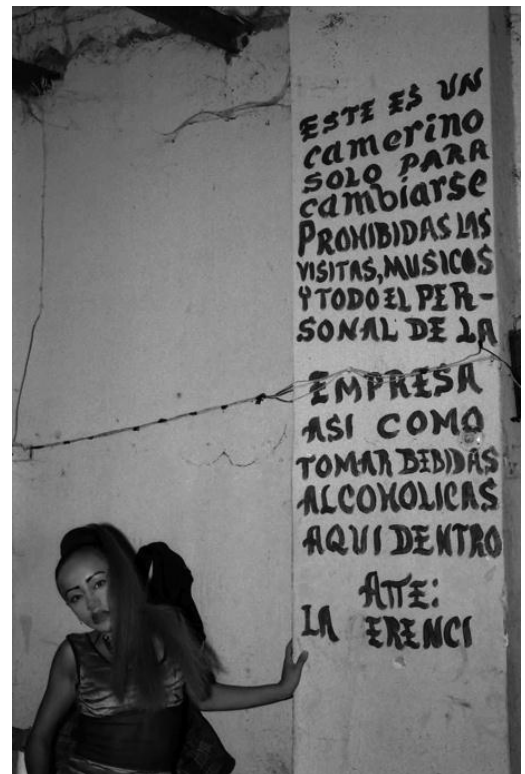 ESTE ES UN
camerino
SOLO PARA
cambiarse
PROHIBIDAS LAS
VISITAS, MUSICOS
Y TODO EL PER-
SONAL DE LA
EMPRESA
ASI COMO
TOMAR BEBIDAS
ALCOHOLICAS
AQUI DENTRO
ATTE:
LA ERENCI